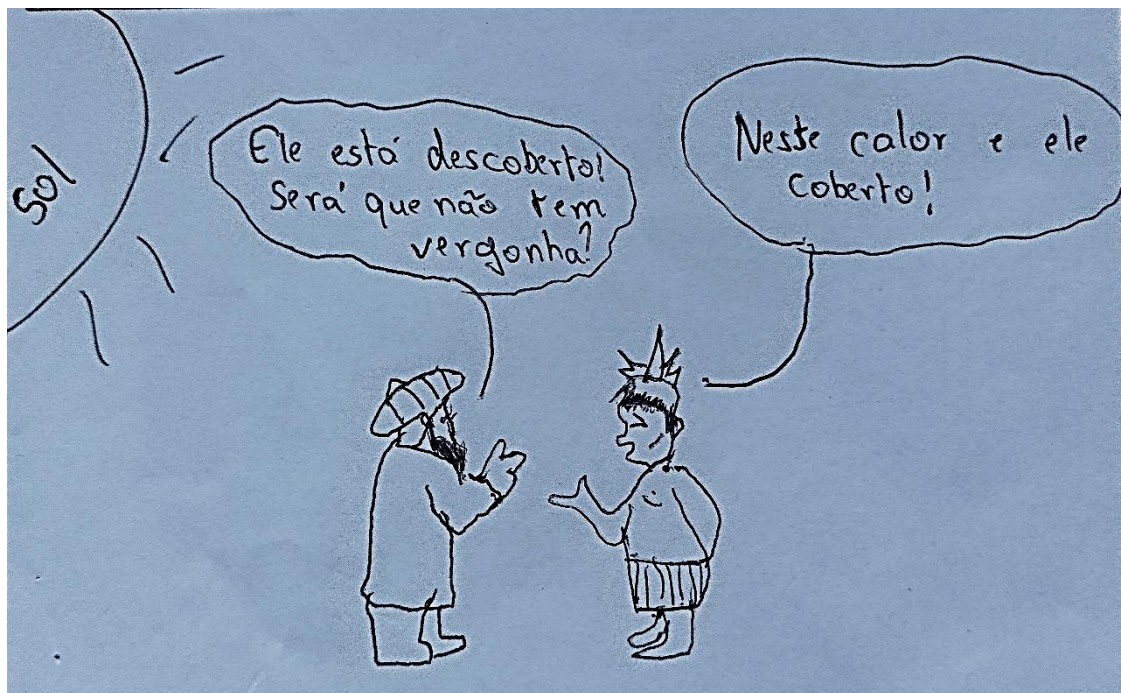 Sol
Ele está descoberto!
Será que não tem
vergonha?
Neste calor e ele
coberto!